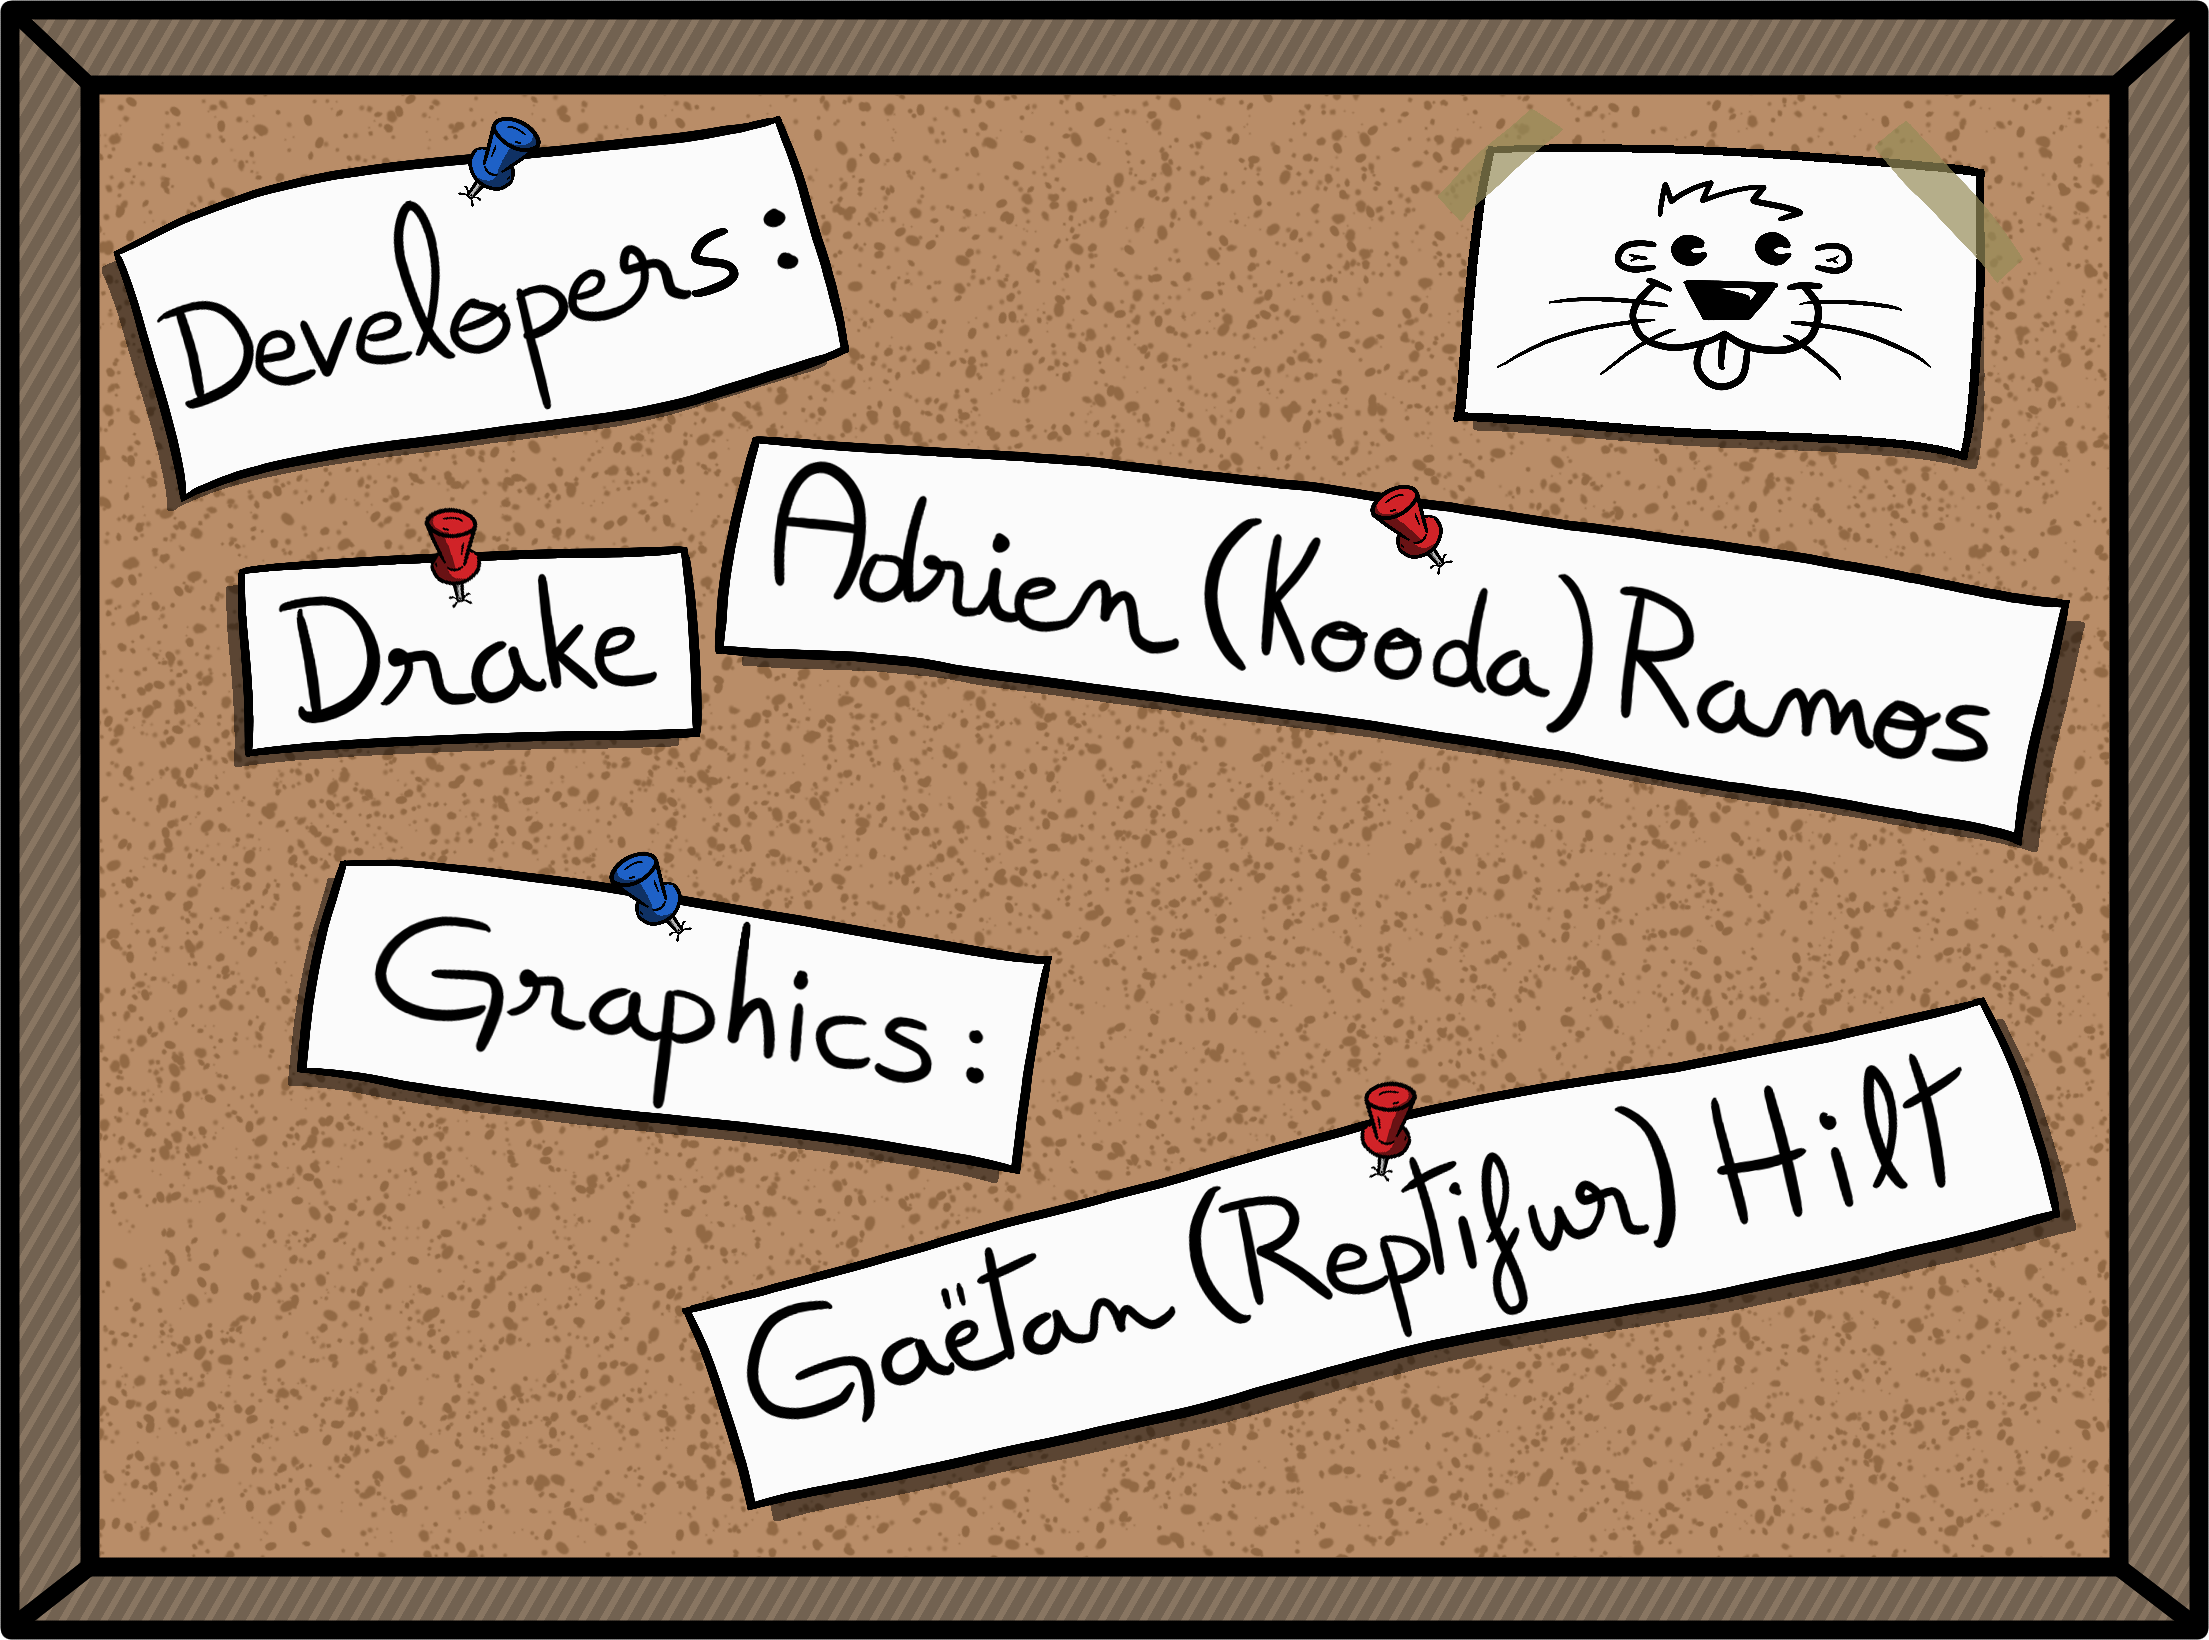 Developers:
Drake
Adrien (Kooda) Ramos
Graphics:
Gaëtan (Reptifur) Hilt